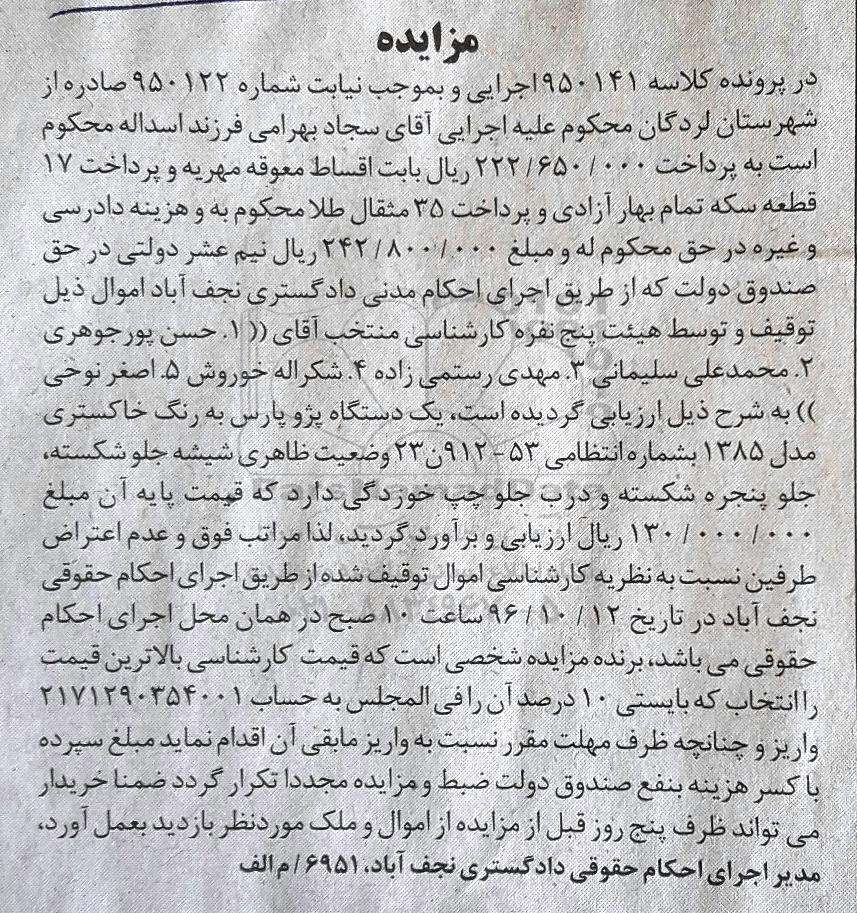 مزایده
در پرونده کلاسه ۹۵۰۱۴۱ اجرایی و بموجب نیابت شماره ۹۵۰۱۲۲ صادره از
شهرستان لردگان محکوم علیه اجرایی آقای سجاد بهرامی فرزند اسداله محکوم
است به پرداخت ۲۲۲/۶۵۰/۰۰۰ ریال بابت اقساط معوقه مهریه و پرداخت ۱۷
قطعه سکه تمام بهار آزادی و پرداخت ۳۵ مثقال طلا محکوم به و هزینه دادرسی
و غیره در حق محکوم له و مبلغ ۲۴۲/۸۰۰/۰۰۰ ریال نیم عشر دولتی در حق
صندوق دولت که از طریق اجرای احکام مدنی دادگستری نجف آباد اموال ذیل
توقیف و توسط هیئت پنج نفره کارشناسی منتخب آقای (( ۱. حسن پورجوهری
۲. محمدعلی سلیمانی ۳. مهدی رستمی زاده ۴. شکراله خوروش ۵. اصغر نوحی
)) به شرح ذیل ارزیابی گردیده است، یک دستگاه پژو پارس به رنگ خاکستری
مدل ۱۳۸۵ بشماره انتظامی ۵۳-۹۱۲ن۲۳ وضعیت ظاهری شیشه جلو شکسته،
جلو پنجره شکسته و درب جلو چپ خوردگی دارد که قیمت پایه آن مبلغ
۱۳۰/۰۰۰/۰۰۰ ریال ارزیابی و برآورد گردید، لذا مراتب فوق و عدم اعتراض
طرفین نسبت به نظریه کارشناسی اموال توقیف شده از طریق اجرای احکام حقوقی
نجف آباد در تاریخ ۹۶/۱۰/۱۲ ساعت ۱۰ صبح در همان محل اجرای احکام
حقوقی می باشد، برنده مزایده شخصی است که قیمت کارشناسی بالاترین قیمت
را انتخاب که بایستی ۱۰ درصد آن را فی المجلس به حساب ۲۱۷۱۲۹۰۳۵۴۰۰۱
واریز و چنانچه ظرف مهلت مقرر نسبت به واریز مابقی آن اقدام نماید مبلغ سپرده
با کسر هزینه بنفع صندوق دولت ضبط و مزایده مجددا تکرار گردد ضمنا خریدار
می تواند ظرف پنج روز قبل از مزایده از اموال و ملک موردنظر بازدید بعمل آورد،
مدیر اجرای احکام حقوقی دادگستری نجف آباد، ۶۹۵۱/م الف